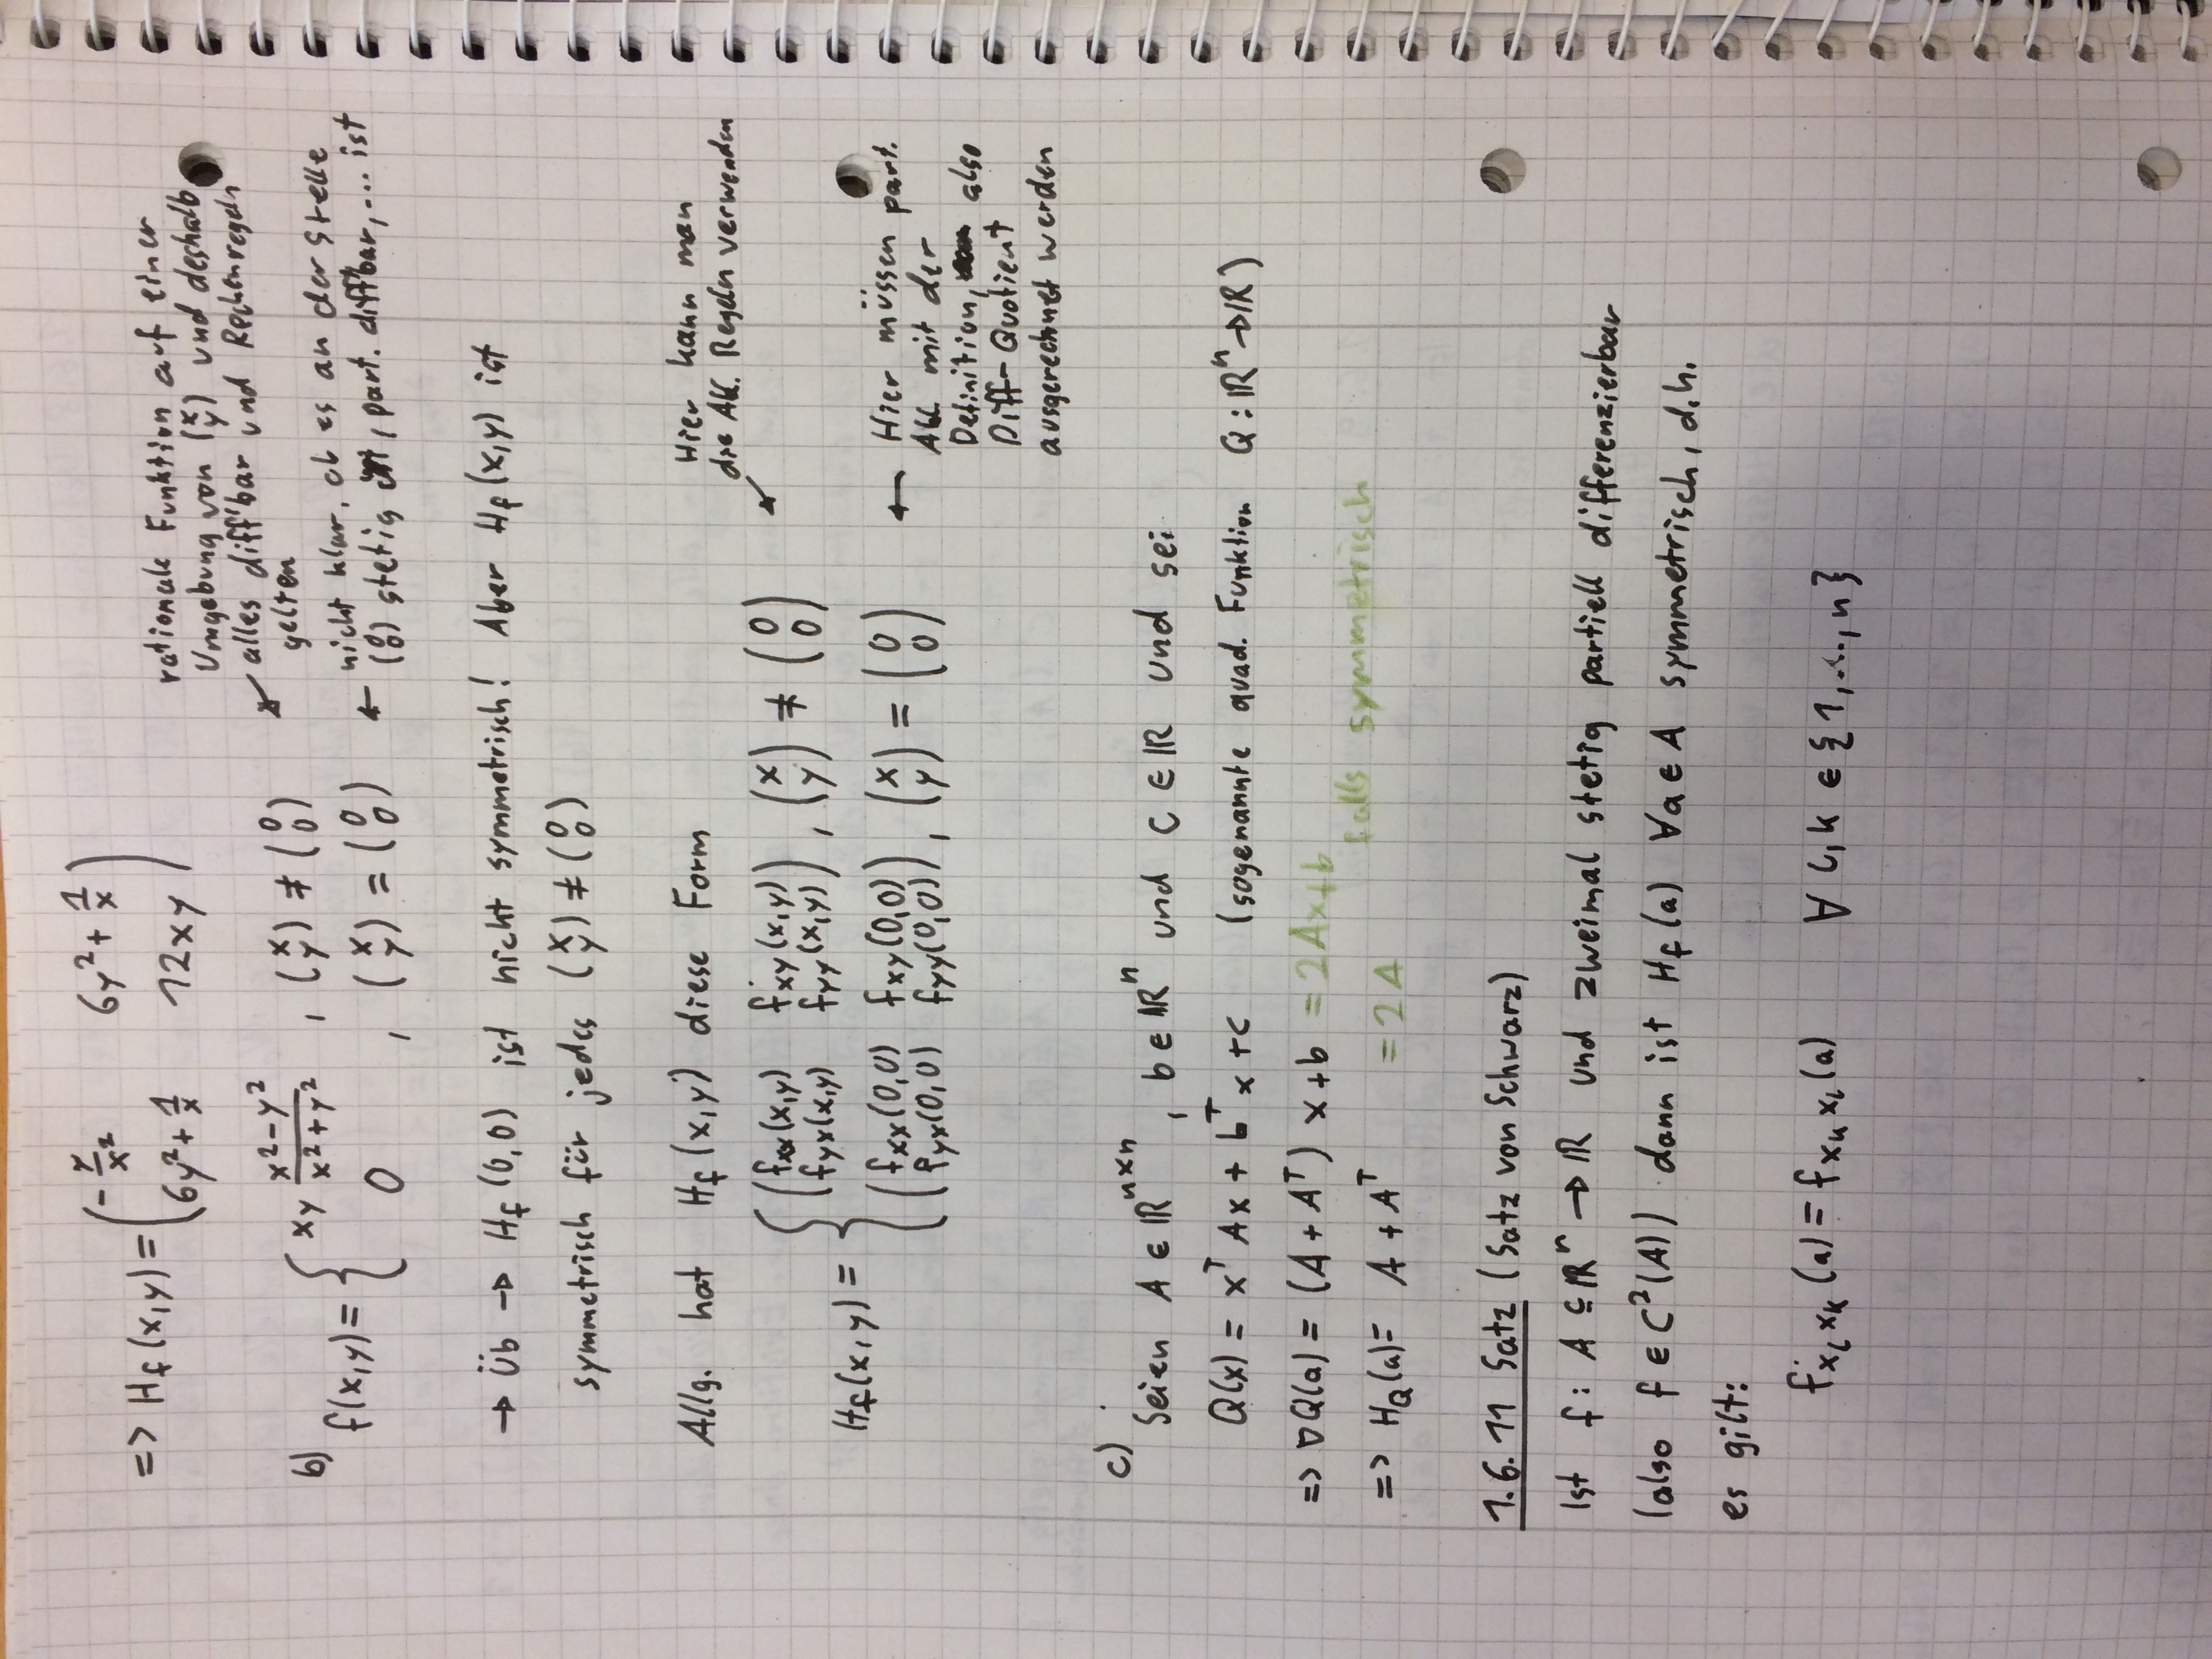 => H_f (x,y) = ( -y/x²   6y² + 1/x
6y² + 1/x   12xy )
rationale Funktion auf einer
Umgebung von (x y) und deshalb
alles diff'bar und Rechenregeln
gelten
b) f(x,y) = { xy (x²-y²)/(x²+y²) , (x y) ≠ (0 0)
0 , (x y) = (0 0)
← nicht klar, ob es an der Stelle
(0 0) stetig ist, part. diff'bar, ... ist
→ Üb → H_f (0,0) ist nicht symmetrisch! Aber H_f (x,y) ist
symmetrisch für jedes (x y) ≠ (0 0)
Allg. hat H_f (x,y) diese Form
Hier kann man
die Abl. Regeln verwenden
H_f(x,y) = { ( f_xx(x,y)   f_xy(x,y)
f_yx(x,y)   f_yy(x,y) ) , (x y) ≠ (0 0)
( f_xx(0,0)   f_xy(0,0)
f_yx(0,0)   f_yy(0,0) ) , (x y) = (0 0)
← Hier müssen part.
Abl. mit der
Definition, also
Diff-Quotient
ausgerechnet werden
c)
Seien A ∈ ℝ^(n×n) , b ∈ ℝ^n und c ∈ ℝ und sei
Q(x) = x^T Ax + b^T x + c (sogenannte quad. Funktion Q : ℝ^n → ℝ)
=> ∇Q(a) = (A + A^T) x + b = 2Ax+b
falls symmetrisch
=> H_Q(a) = A + A^T = 2A
1.6.11 Satz (Satz von Schwarz)
Ist f : A ⊆ ℝ^n → ℝ und zweimal stetig partiell differenzierbar
(also f ∈ C²(A)) dann ist H_f (a) ∀a ∈ A symmetrisch, d.h.
es gilt:
f_{x_l x_k} (a) = f_{x_k x_l} (a) ∀ l,k ∈ {1,...,n}